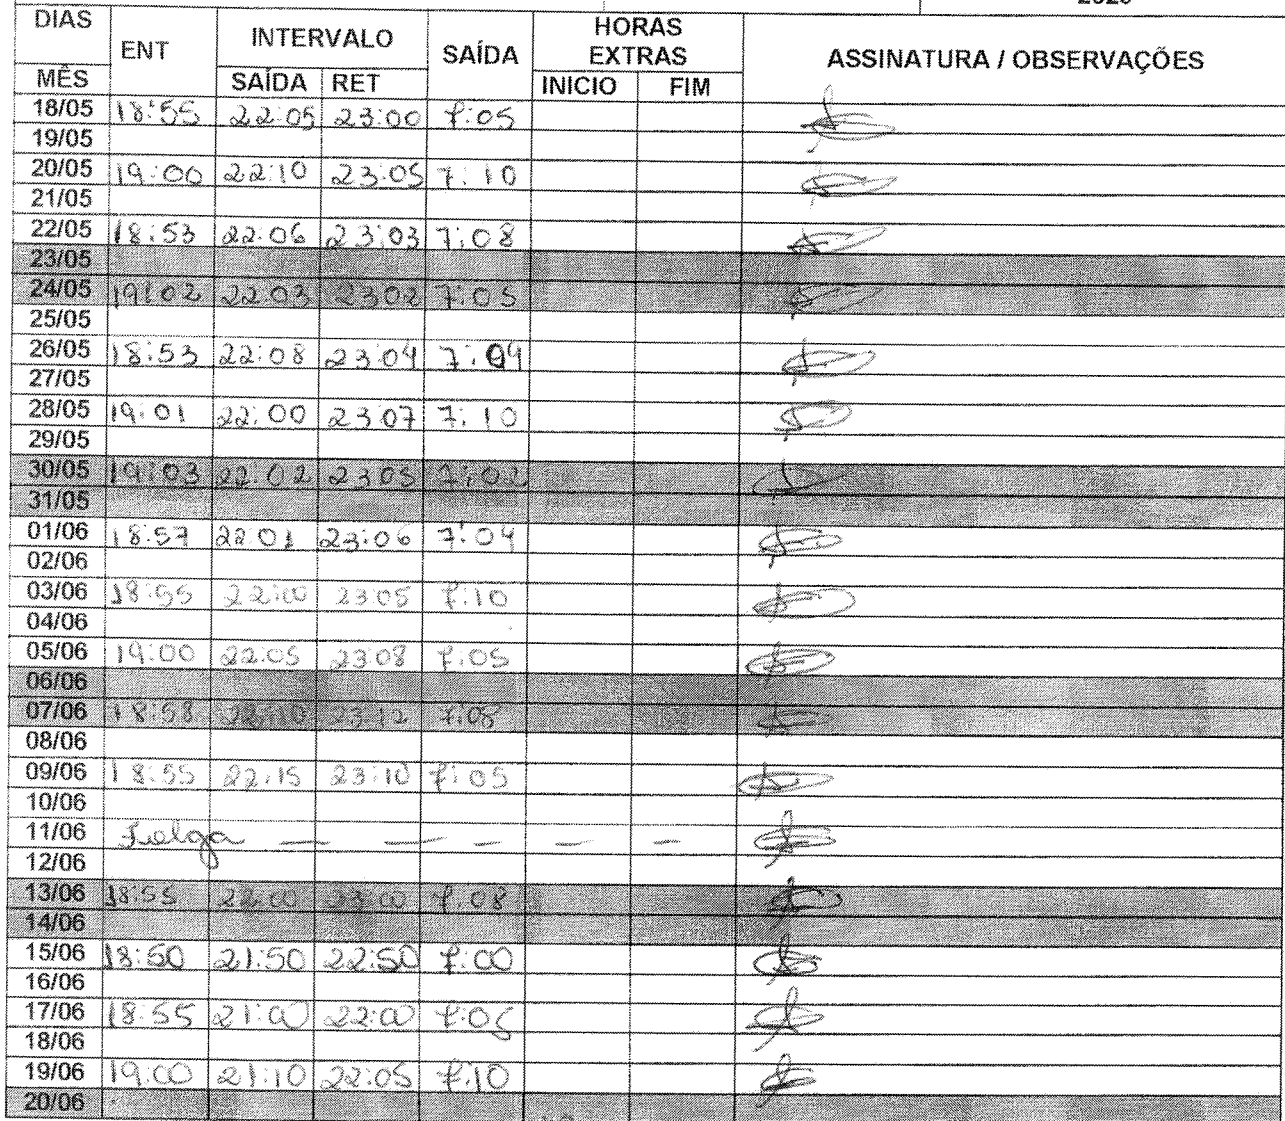 DIAS ENT INTERVALO SAÍDA HORAS EXTRAS ASSINATURA / OBSERVAÇÕES
MÊS SAÍDA RET INICIO FIM
18/05 18:55 22:05 23:00 7:05
19/05
20/05 19:00 22:10 23:05 7:10
21/05
22/05 18:53 22:06 23:03 7:08
23/05
24/05 19:02 22:03 23:02 7:05
25/05
26/05 18:53 22:08 23:04 7:04
27/05
28/05 19:01 22:00 23:07 7:10
29/05
30/05 19:03 22:02 23:05 7:02
31/05
01/06 18:57 22:01 23:06 7:04
02/06
03/06 18:55 22:00 23:05 7:10
04/06
05/06 19:00 22:05 23:08 7:05
06/06
07/06 18:58 22:10 23:12 7:08
08/06
09/06 18:55 22:15 23:10 7:05
10/06
11/06 Folga — — — — —
12/06
13/06 18:55 22:00 23:00 7:08
14/06
15/06 18:50 21:50 22:50 7:00
16/06
17/06 18:55 21:00 22:00 7:05
18/06
19/06 19:00 21:10 22:05 7:10
20/06